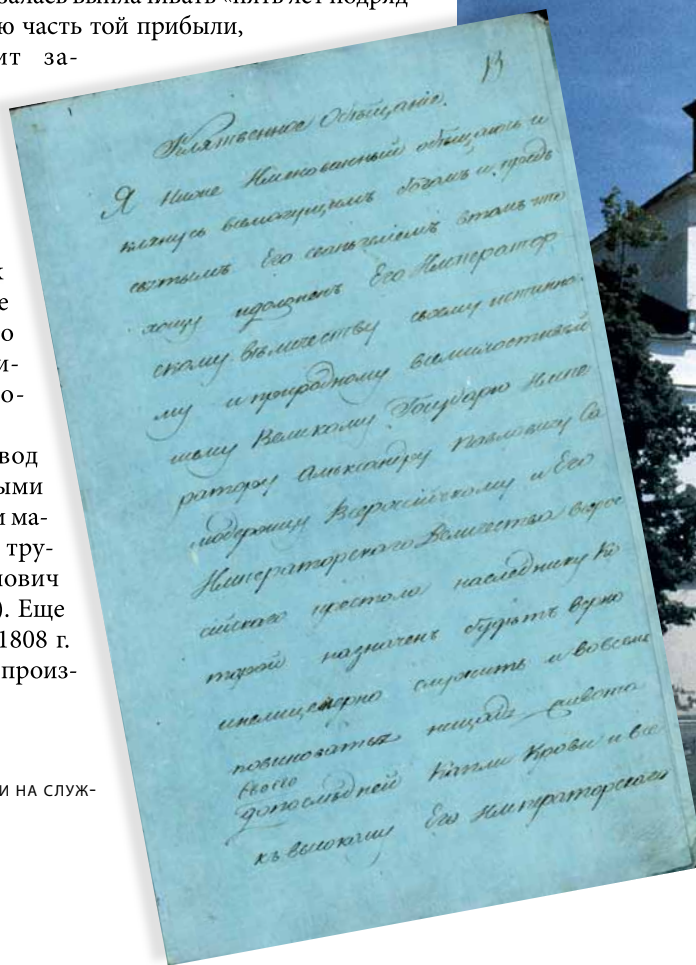 валась выплачивать «пять лет подряд
ю часть той прибыли,
ит за-
к
е
о
и-
о-
вод
ыми
и ма-
тру-
ювич
). Еще
1808 г.
произ-
И НА СЛУЖ-
13
Клятвенное Обѣщание.
Я ниже Именованный обѣщаюсь и
клянусь всемогущимъ богомъ и, предъ
святымъ Его еваньгелиемъ втомъ что
хощу и долженъ Его Император
скому величеству своему истинно
му и природному всемилостивей
шему Великому Государю Импе
ратору Александру Павловичу Са
модержцу Всероссийскому и Его
Императорского Величества всеро
сийскаго престола наследнику Ко
торой назначенъ будетъ верно
инелицемерно служить и вовсемъ
повиноватца нещадя живота
своего
допоследней Капли Крови и все
къ высокому Его Императорскаго